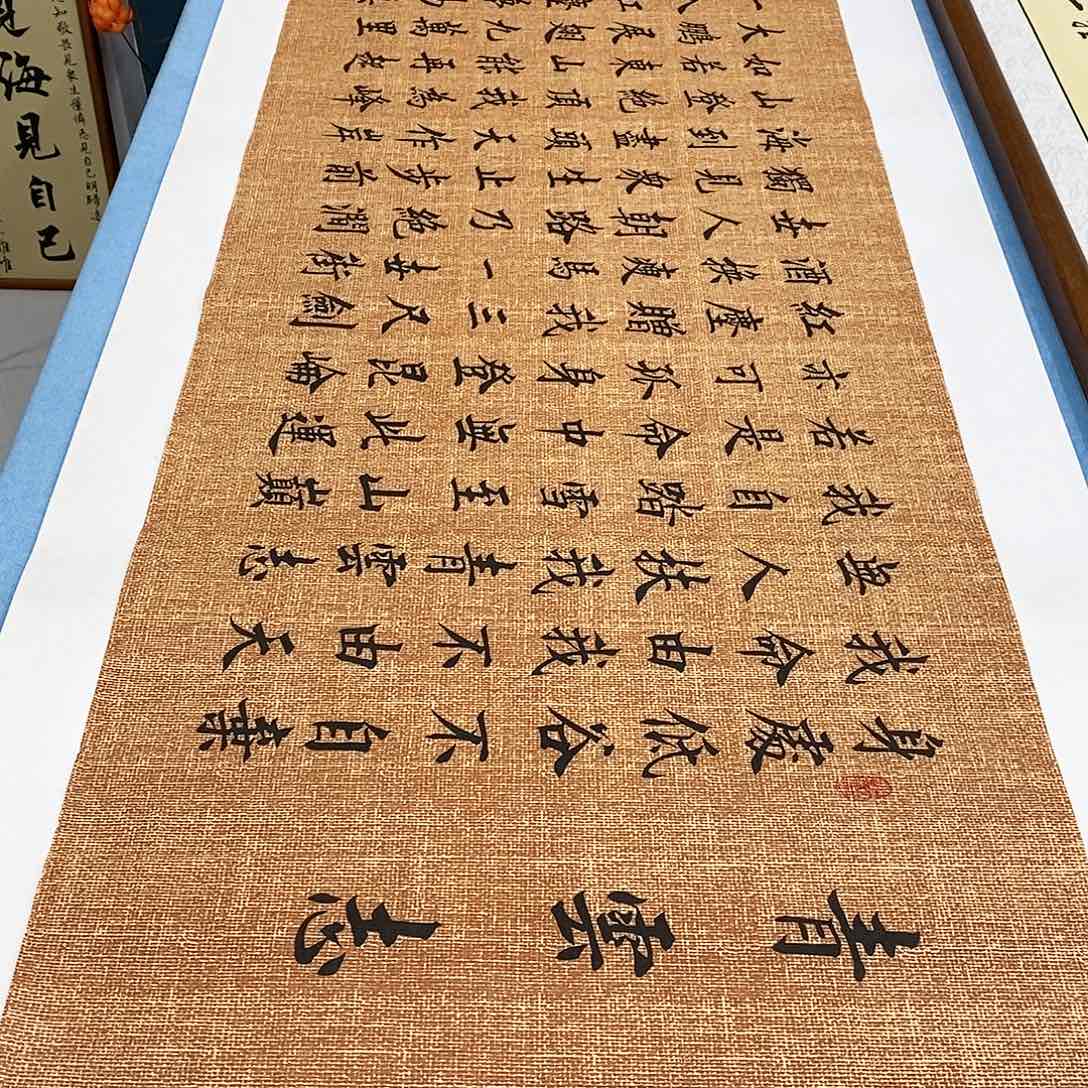 青雲志
身處低谷不自棄
我命由我不由天
無人扶我青雲志
我自踏雪至山巔
若是命中無此運
亦可孤身登昆崘
紅塵贈我三尺劍
酒換瘦馬一世街
世人朝路乃絕澗
獨見眾生止步前
海到盡頭天作岸
山登絕頂我為峰
如若東山能再起
大鵬展翅九萬里
海見自己
知敬畏見眾生懂憐憫見自己明歸途